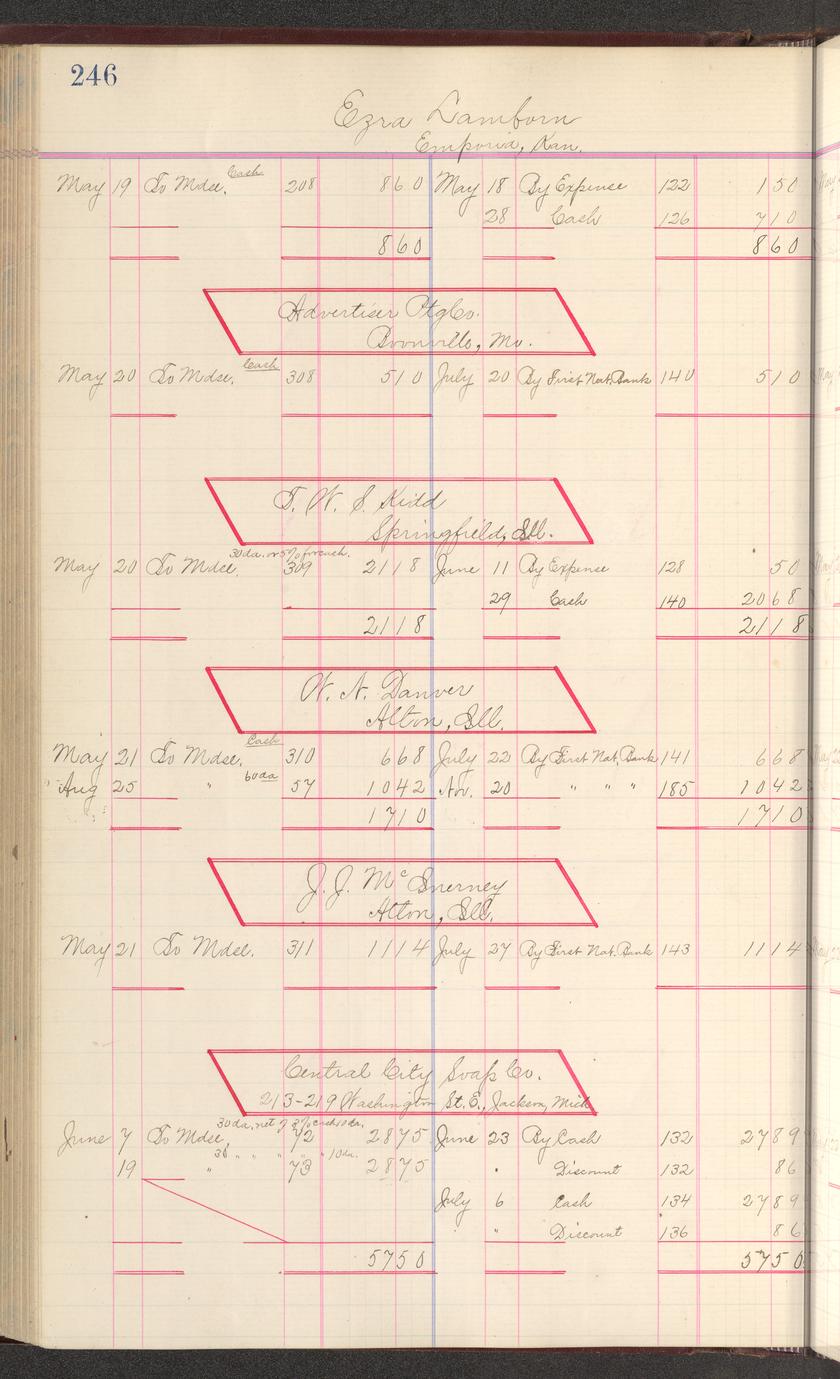 246
Ezra Lamborn
Emporia, Kan.
May 19 To Mdse. Cash 208 8 60 May 18 By Expense 122 1 50
28 Cash 126 7 10
8 60 8 60
Advertiser Ptg Co.
Boonville, Mo.
May 20 To Mdse. Cash 308 5 10 July 20 By First Nat. Bank 140 5 10
T. W. S. Kidd
Springfield, Ill.
30 da. or 5% for cash.
May 20 To Mdse. 309 21 18 June 11 By Expense 128 50
29 Cash 140 20 68
21 18 21 18
W. N. Danver
Alton, Ill.
May 21 To Mdse. Cash 310 6 68 July 22 By First Nat. Bank 141 6 68
Aug 25 " 60 da 57 10 42 Nov. 20 " " " 185 10 42
17 10 17 10
J. J. McInerney
Alton, Ill.
May 21 To Mdse. 311 11 14 July 27 By First Nat. Bank 143 11 14
Central City Soap Co.
213-219 Washington St. E., Jackson, Mich
30 da. net 3% cash 10 da.
June 7 To Mdse. 72 28 75 June 23 By Cash 132 27 89
19 " 30 " " " " 10 da. 73 28 75 " Discount 132 86
July 6 Cash 134 27 89
" Discount 136 86
57 50 57 50